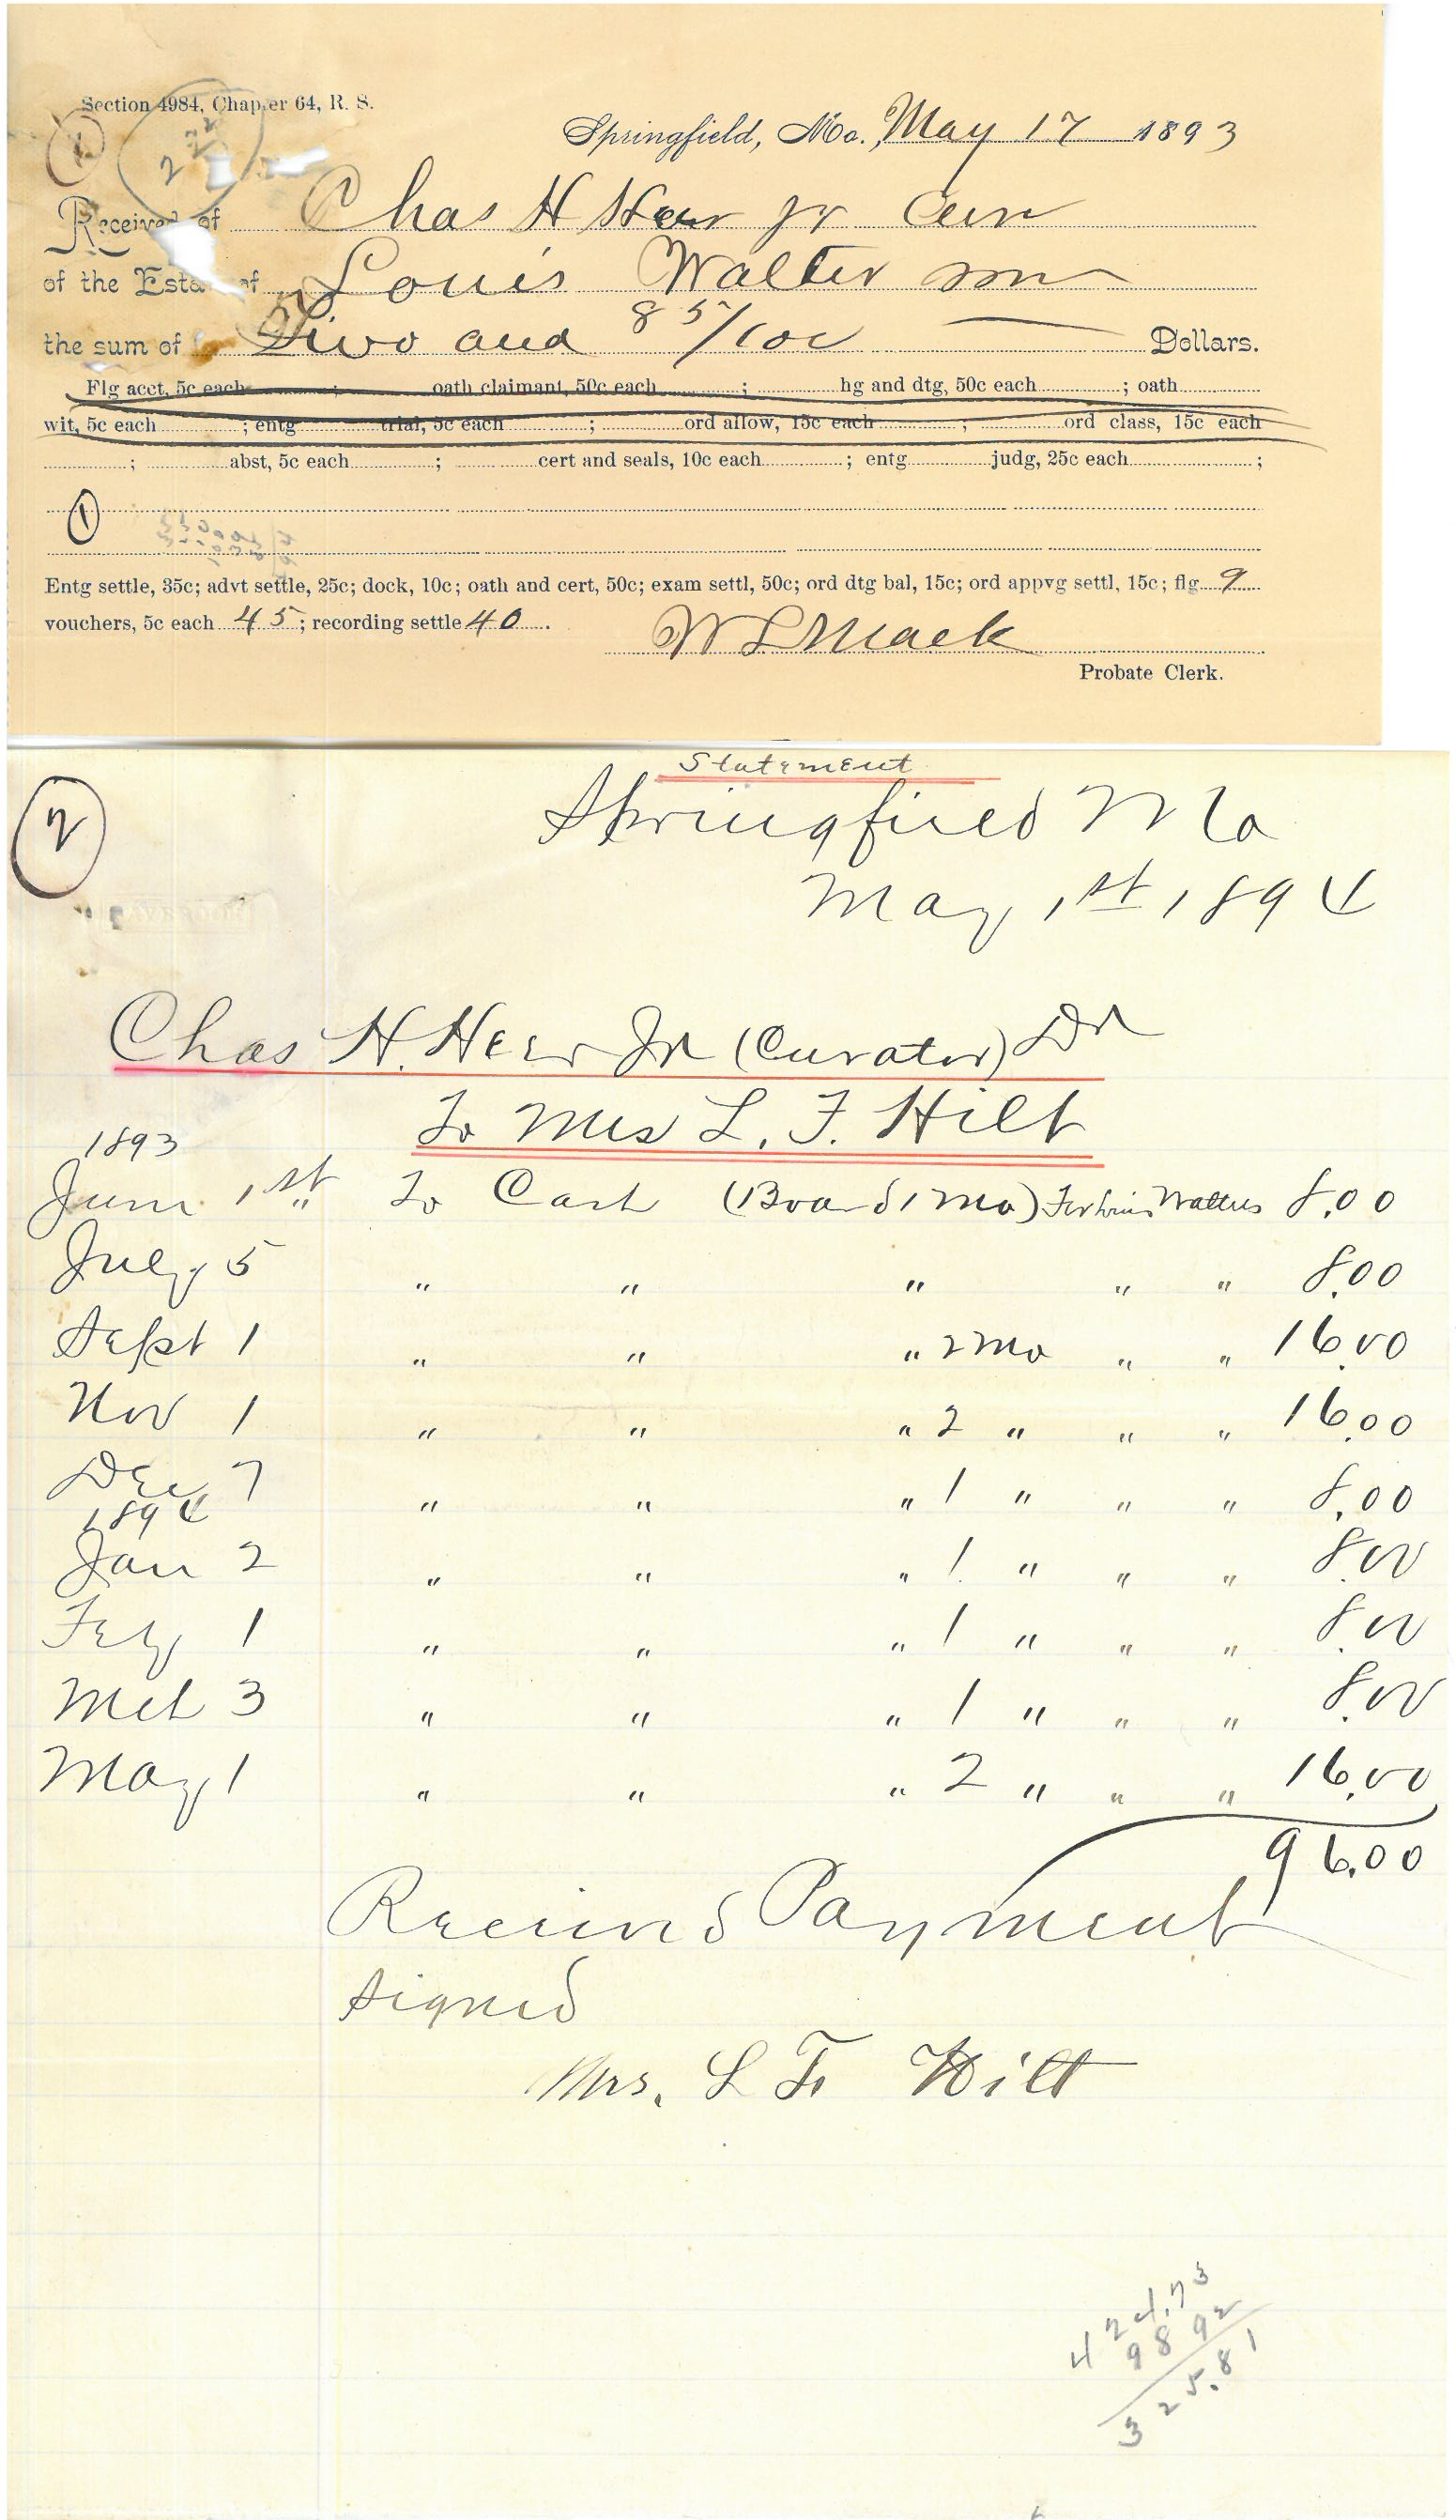 Section 4984, Chapter 64, R. S.
Springfield, Mo., May 17 1893
Received of Chas H Heer Jr Cur
of the Estate of Louis Walter
the sum of Two and 85/100 Dollars.
Flg acct, 5c each ; oath claimant, 50c each ; hg and dtg, 50c each ; oath
wit, 5c each ; entg trial, 5c each ; ord allow, 15c each ; ord class, 15c each
; abst, 5c each ; cert and seals, 10c each ; entg judg, 25c each ;
1
Entg settle, 35c; advt settle, 25c; dock, 10c; oath and cert, 50c; exam settl, 50c; ord dtg bal, 15c; ord appvg settl, 15c; flg 9
vouchers, 5c each 45; recording settle 40.
W L Mack
Probate Clerk.
Statement
2
Springfield Mo
May 1st 1894
Chas H. Heer Jr (Curator) Dr
To Mrs L. F. Hilt
1893
June 1st To Cash (Board 1 Mo) For Louis Walters 8.00
July 5 " " " " " 8.00
Sept 1 " " " 2 Mo " " 16.00
Nov 1 " " " 2 " " " 16.00
Dec 7 " " " 1 " " " 8.00
1894
Jan 2 " " " 1 " " " 8.00
Feby 1 " " " 1 " " " 8.00
Mch 3 " " " 1 " " " 8.00
May 1 " " " 2 " " " 16.00
96.00
Received Payment
Signed
Mrs. L F. Hilt
424.73
9892
325.81